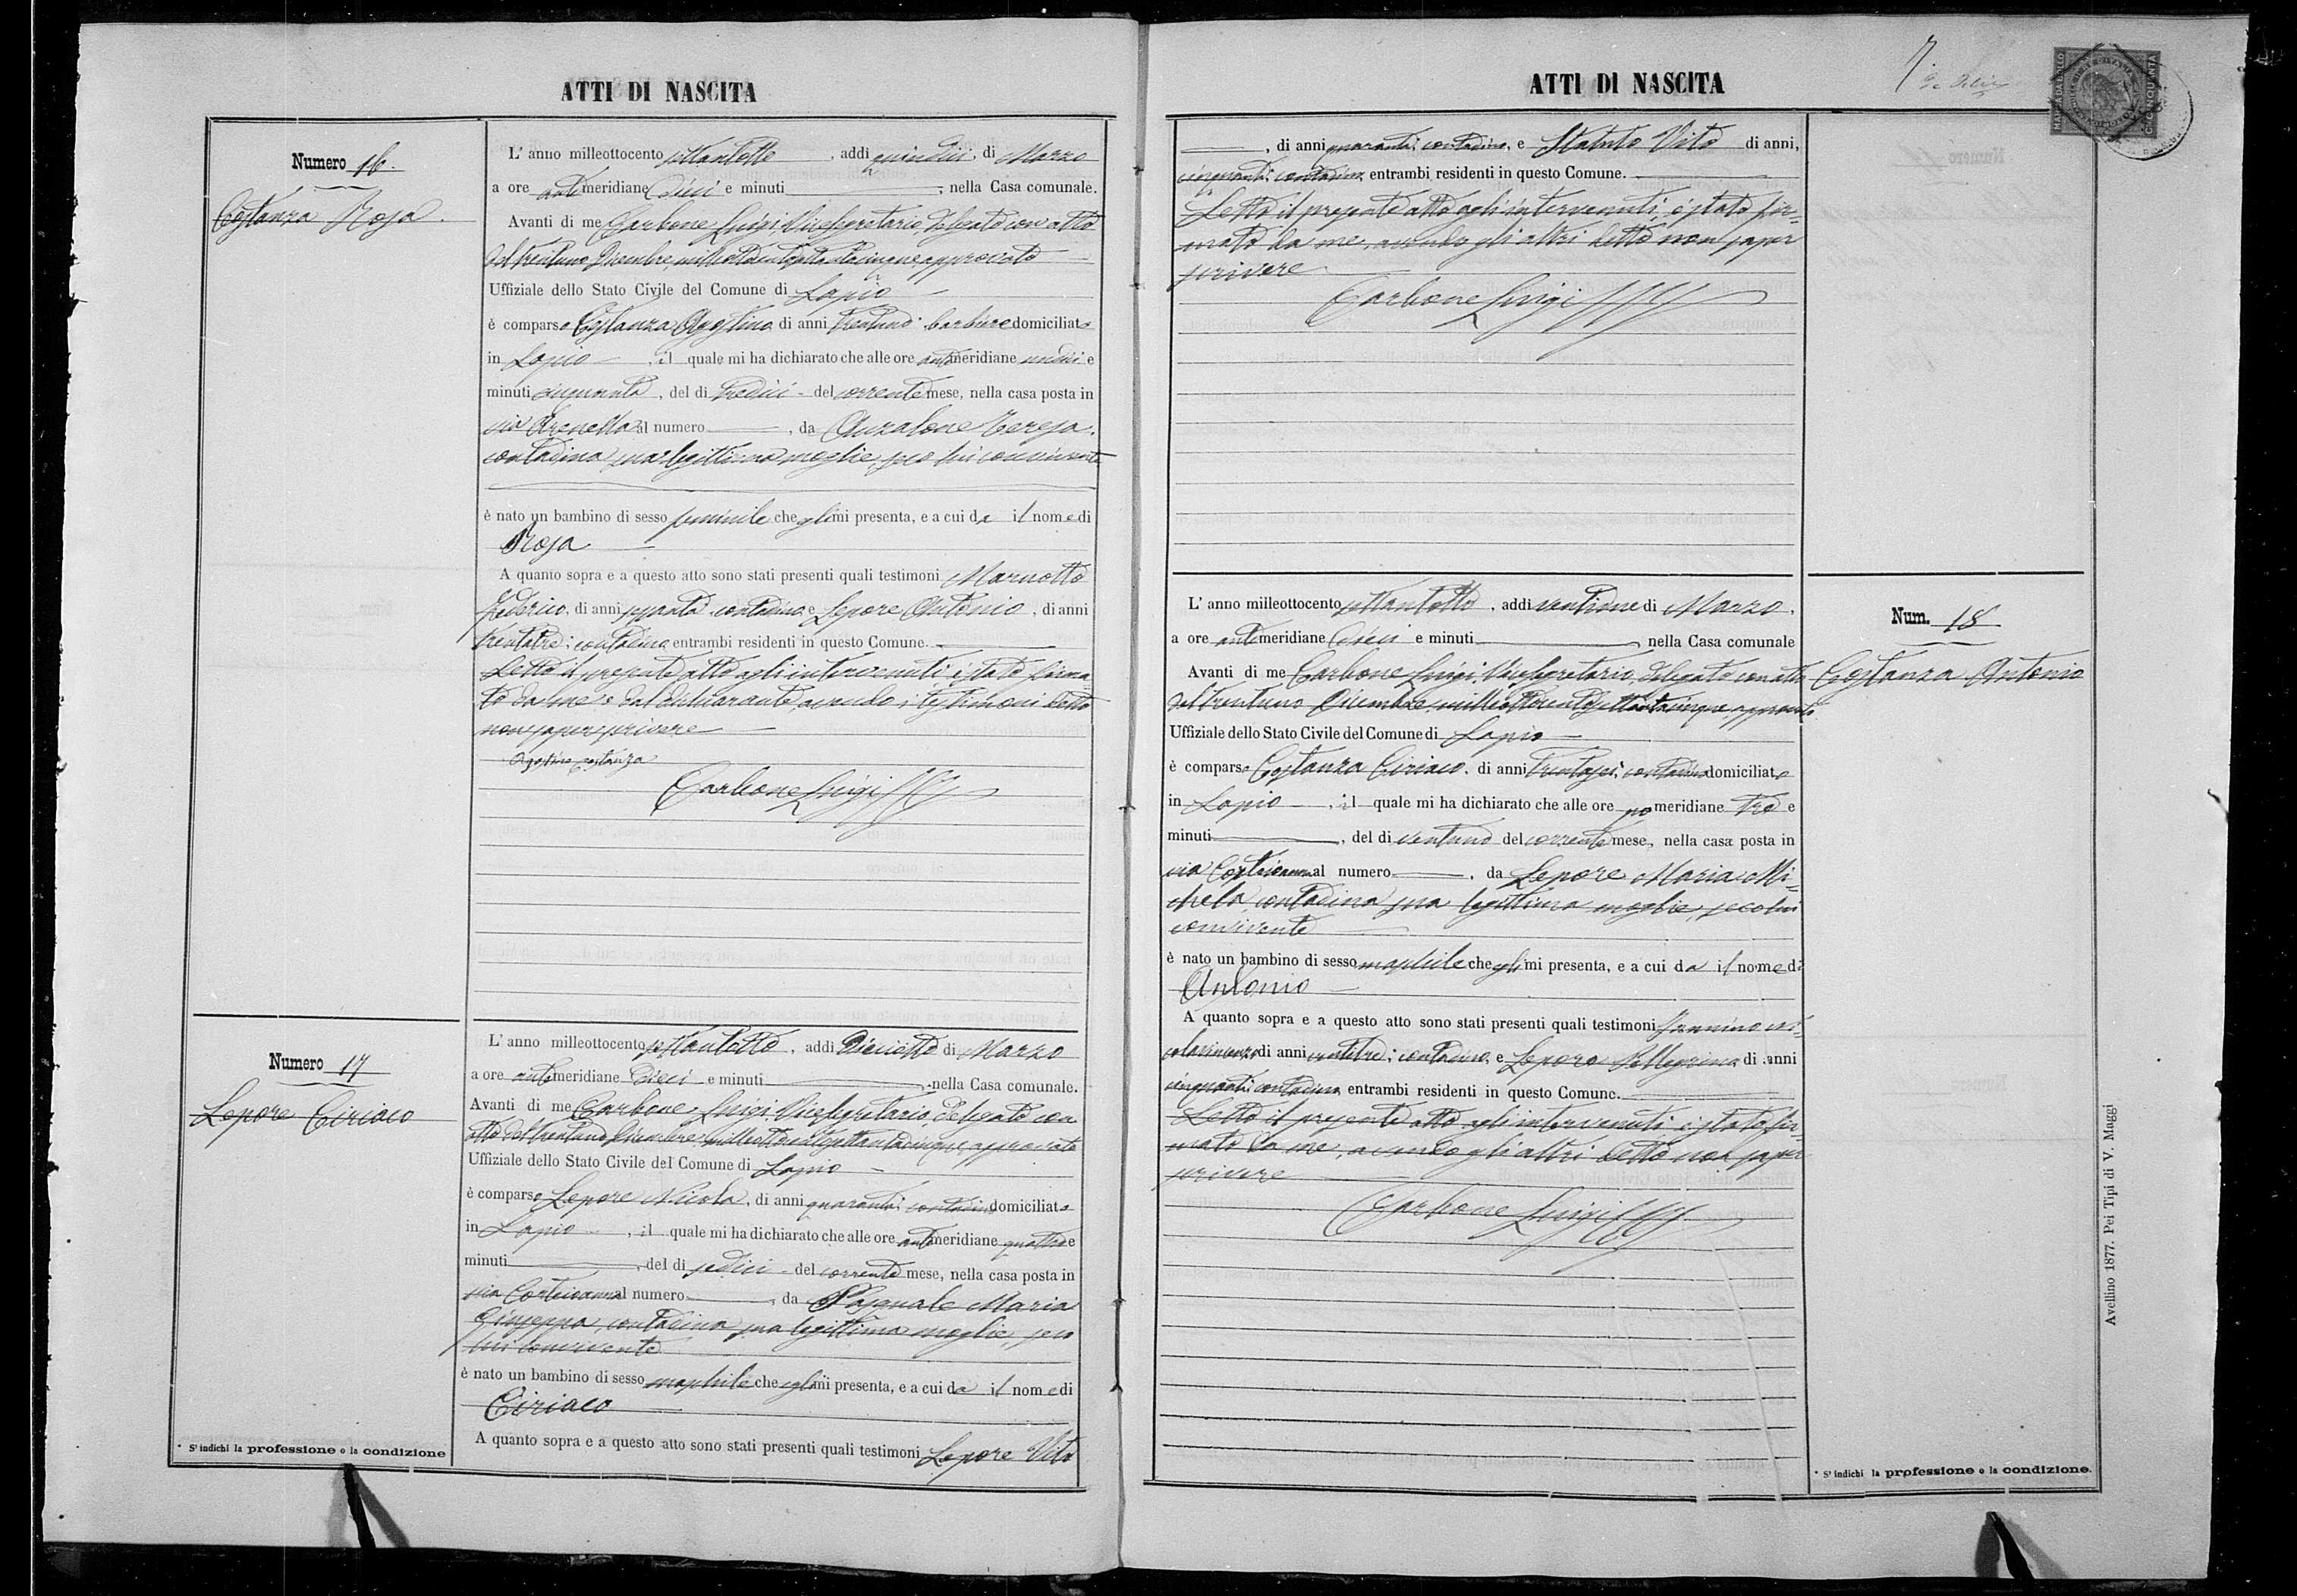 ATTI DI NASCITA
Numero 16.
Costanza Rosa
L' anno milleottocento settantotto, addi quindici di Marzo
a ore antimeridiane dieci e minuti, nella Casa comunale.
Avanti di me Carbone Luigi Vicesegretario delegato con atto
del trentuno Dicembre milleottocentosettantacinque approvato
Uffiziale dello Stato Civile del Comune di Lapio
è comparso Costanza Agostino di anni trentuno barbiere domiciliato
in Lapio, il quale mi ha dichiarato che alle ore antimeridiane undici e
minuti cinquanta, del di tredici del corrente mese, nella casa posta in
via Arenella al numero, da Anzalone Teresa
contadina sua legittima moglie, seco lui convivente
è nato un bambino di sesso feminile che egli mi presenta, e a cui da il nome di
Rosa
A quanto sopra e a questo atto sono stati presenti quali testimoni
Federico, di anni contadino e Lepore Antonio, di anni
trentatre, contadino entrambi residenti in questo Comune.
Letto il presente atto agli intervenuti è stato firma-
to da me e dal dichiarante, avendo i testimoni detto
non saper scrivere
Agostino Costanza
Carbone Luigi
Numero 17
Lepore Ciriaco
L' anno milleottocento settantotto, addi Dieciotto di Marzo
a ore antimeridiane dieci e minuti, nella Casa comunale.
Avanti di me Carbone Luigi Vicesegretario delegato con
atto del trentuno Dicembre milleottocentosettantacinque approvato
Uffiziale dello Stato Civile del Comune di Lapio
è comparso Lepore Nicola, di anni quaranta contadino domiciliato
in Lapio, il quale mi ha dichiarato che alle ore antimeridiane quattro e
minuti, del di sedici del corrente mese, nella casa posta in
via al numero, da Pasquale Maria
Giuseppa, contadina sua legittima moglie, seco
lui convivente
è nato un bambino di sesso maschile che egli mi presenta, e a cui da il nome di
Ciriaco
A quanto sopra e a questo atto sono stati presenti quali testimoni Lepore Vito
* S' indichi la professione o la condizione
ATTI DI NASCITA
7.
MARCA DA BOLLO
CINQUANTA
, di anni quaranta contadino, e Statuto Vito di anni,
cinquanta contadino, entrambi residenti in questo Comune.
Letto il presente atto agli intervenuti, è stato fir-
mato da me, avendo gli altri detto non saper
scrivere
Carbone Luigi
Num. 18
Costanza Antonio
L' anno milleottocento settantotto, addi ventidue di Marzo,
a ore antimeridiane dieci e minuti, nella Casa comunale
Avanti di me Carbone Luigi Vicesegretario delegato con atto
del trentuno Dicembre milleottocentosettantacinque approvato
Uffiziale dello Stato Civile del Comune di Lapio
è comparso Costanza Ciriaco, di anni trentasei, contadino domiciliato
in Lapio, il quale mi ha dichiarato che alle ore pomeridiane tre e
minuti, del di ventuno del corrente mese, nella casa posta in
via al numero, da Lepore Maria Mi-
chela, contadina sua legittima moglie, seco lui
convivente
è nato un bambino di sesso maschile che egli mi presenta, e a cui da il nome di
Antonio
A quanto sopra e a questo atto sono stati presenti quali testimoni Iannino
di anni ventitre, contadino, e Lepore Pellegrino di anni
cinquanta contadino entrambi residenti in questo Comune.
Letto il presente atto agli intervenuti, è stato fir-
mato da me, avendo gli altri detto non saper
scrivere
Carbone Luigi
* S' indichi la professione o la condizione.
Avellino 1877. Pei Tipi di V. Maggi